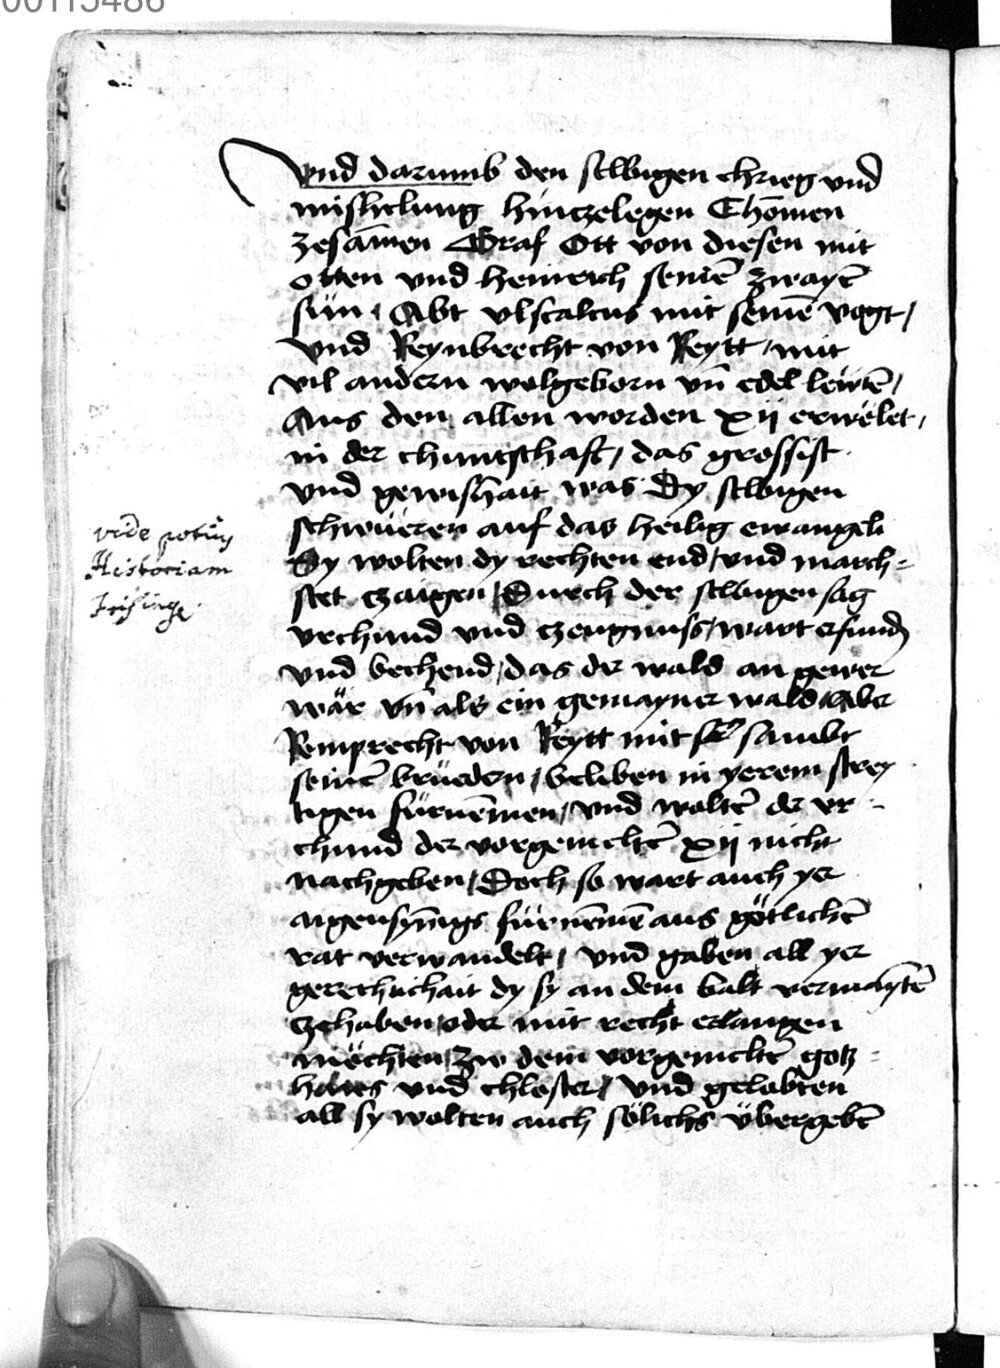 00115486
vnd darumb den selbigen chrieg vnd
mishelung hinczelegen Chömen
zesāmen Graf Ott von diesen mit
otten vnd heinrich seinē zwayē
sün / Abt vlscalcus mit seinē vogt /
vnd Reynbrecht von Reytt / mit
vil andern wolgeborn vn̄ edel lewtē /
Aus den allen worden xij erwelet /
in der chuntschaft / das grossist
vnd gewishait was Dy selbigen
schwueren auf das heilig ewangeli
Sy wolten dy rechten end / vnd march-
stet czaigen / Durch der selbigen sag
vrchund vnd czeugnuss / wart erfundn
vnd bechend / das der wald an gewer
wär vn̄ als ein gemayner wald Aber
Remprecht von Reytt mit sambt
seinē brüedern / beliben in yerem strey
tigen fürnēmen / vnd woltē der vr-
chund der vorgemeltē xij nicht
nachgeben / Doch so wart auch yer
aigensyn̄igs fürnēmē aus götlichē
rat verwandelt / vnd gaben all yer
gerechtichait dy sy an dem balt vermaytē
czehaben / oder mit recht erlangen
mechten / zw dem vorgemeltē gotz-
haus vnd chloster / vnd gelobten
all sy wolten auch sölichs übergebē
vide potius
Historiam
Frising.